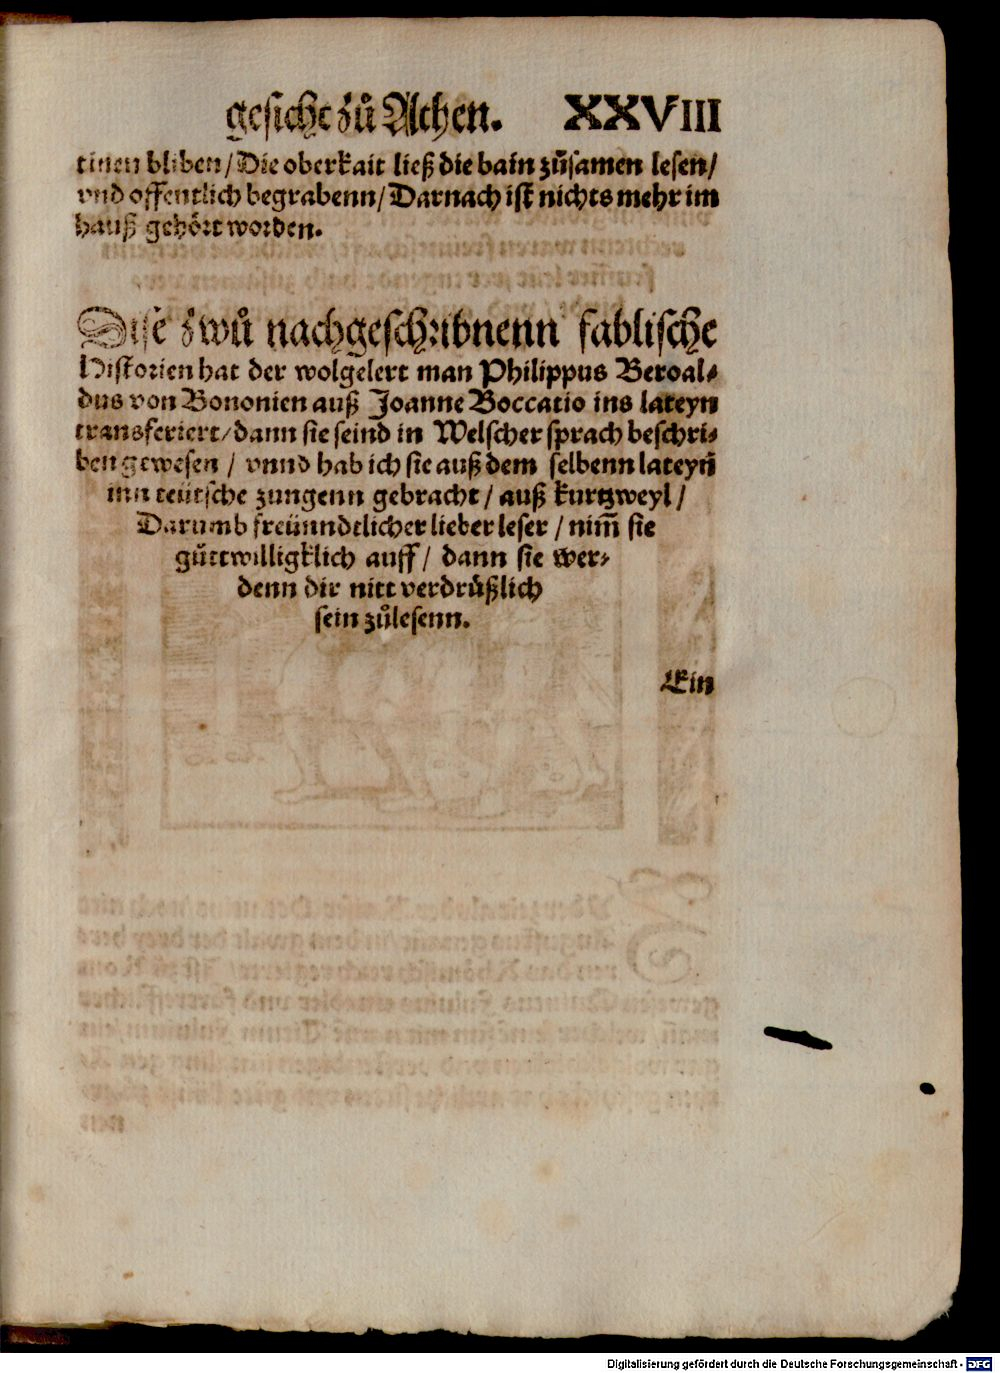 gesicht zů Athen. XXVIII
tinen bliben/ Die oberkait ließ die bain zůsamen lesen/
vnd offentlich begrabenn/ Darnach ist nichts mehr im
hauß gehört worden.
Dise zwů nachgeschribnenn fablische
Historien hat der wolgelert man Philippus Beroal⸗
dus von Bononien auß Joanne Boccatio ins lateyn
transferiert/ dann sie seind in Welscher sprach beschri⸗
ben gewesen / vnnd hab ich sie auß dem selbenn lateyn̄
inn teütsche zungenn gebracht / auß kurtzweyl /
Darumb freünndtlicher lieber leser / nim̄ sie
gůttwilligklich auff / dann sie wer⸗
denn dir nitt verdrüßlich
sein zůlesenn.
Ein
Digitalisierung gefördert durch die Deutsche Forschungsgemeinschaft - DFG